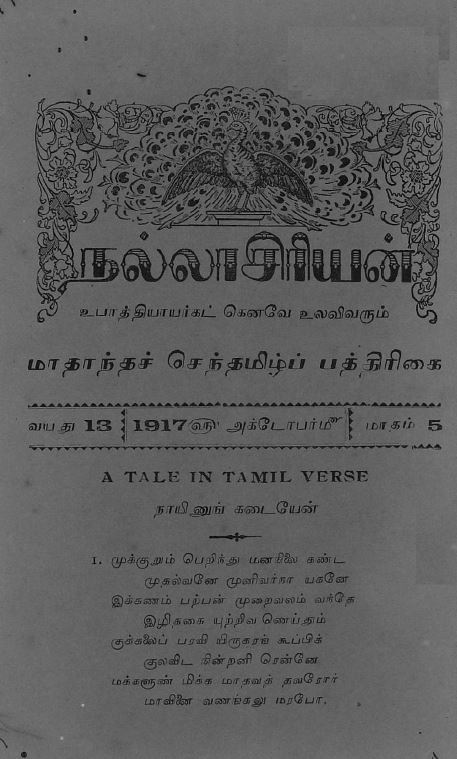 நல்லாசிரியன்
உபாத்தியாயர்கட் கெனவே உலவிவரும்
மாதாந்தச் செந்தமிழ்ப் பத்திரிகை
வயது 13 1917௵ அக்டோபர்௴ மாதம் 5
A TALE IN TAMIL VERSE
நாயினுங் கடையேன்
1. முக்குறும் பெறிந்து மனநிலை கண்ட
முதல்வனே முனிவர்நா யகனே
இக்கணம் பற்பன் முறைவலம் வந்தே
இழிதகை யுற்றிவ ணெய்தும்
குக்கலைப் பரவி யிருகரங் கூப்பிக்
குலவிட நின்றனி ரென்னே
மக்களூண் மிக்க மாதவத் தவரோர்
மாவினை வணங்கலு மரபோ.